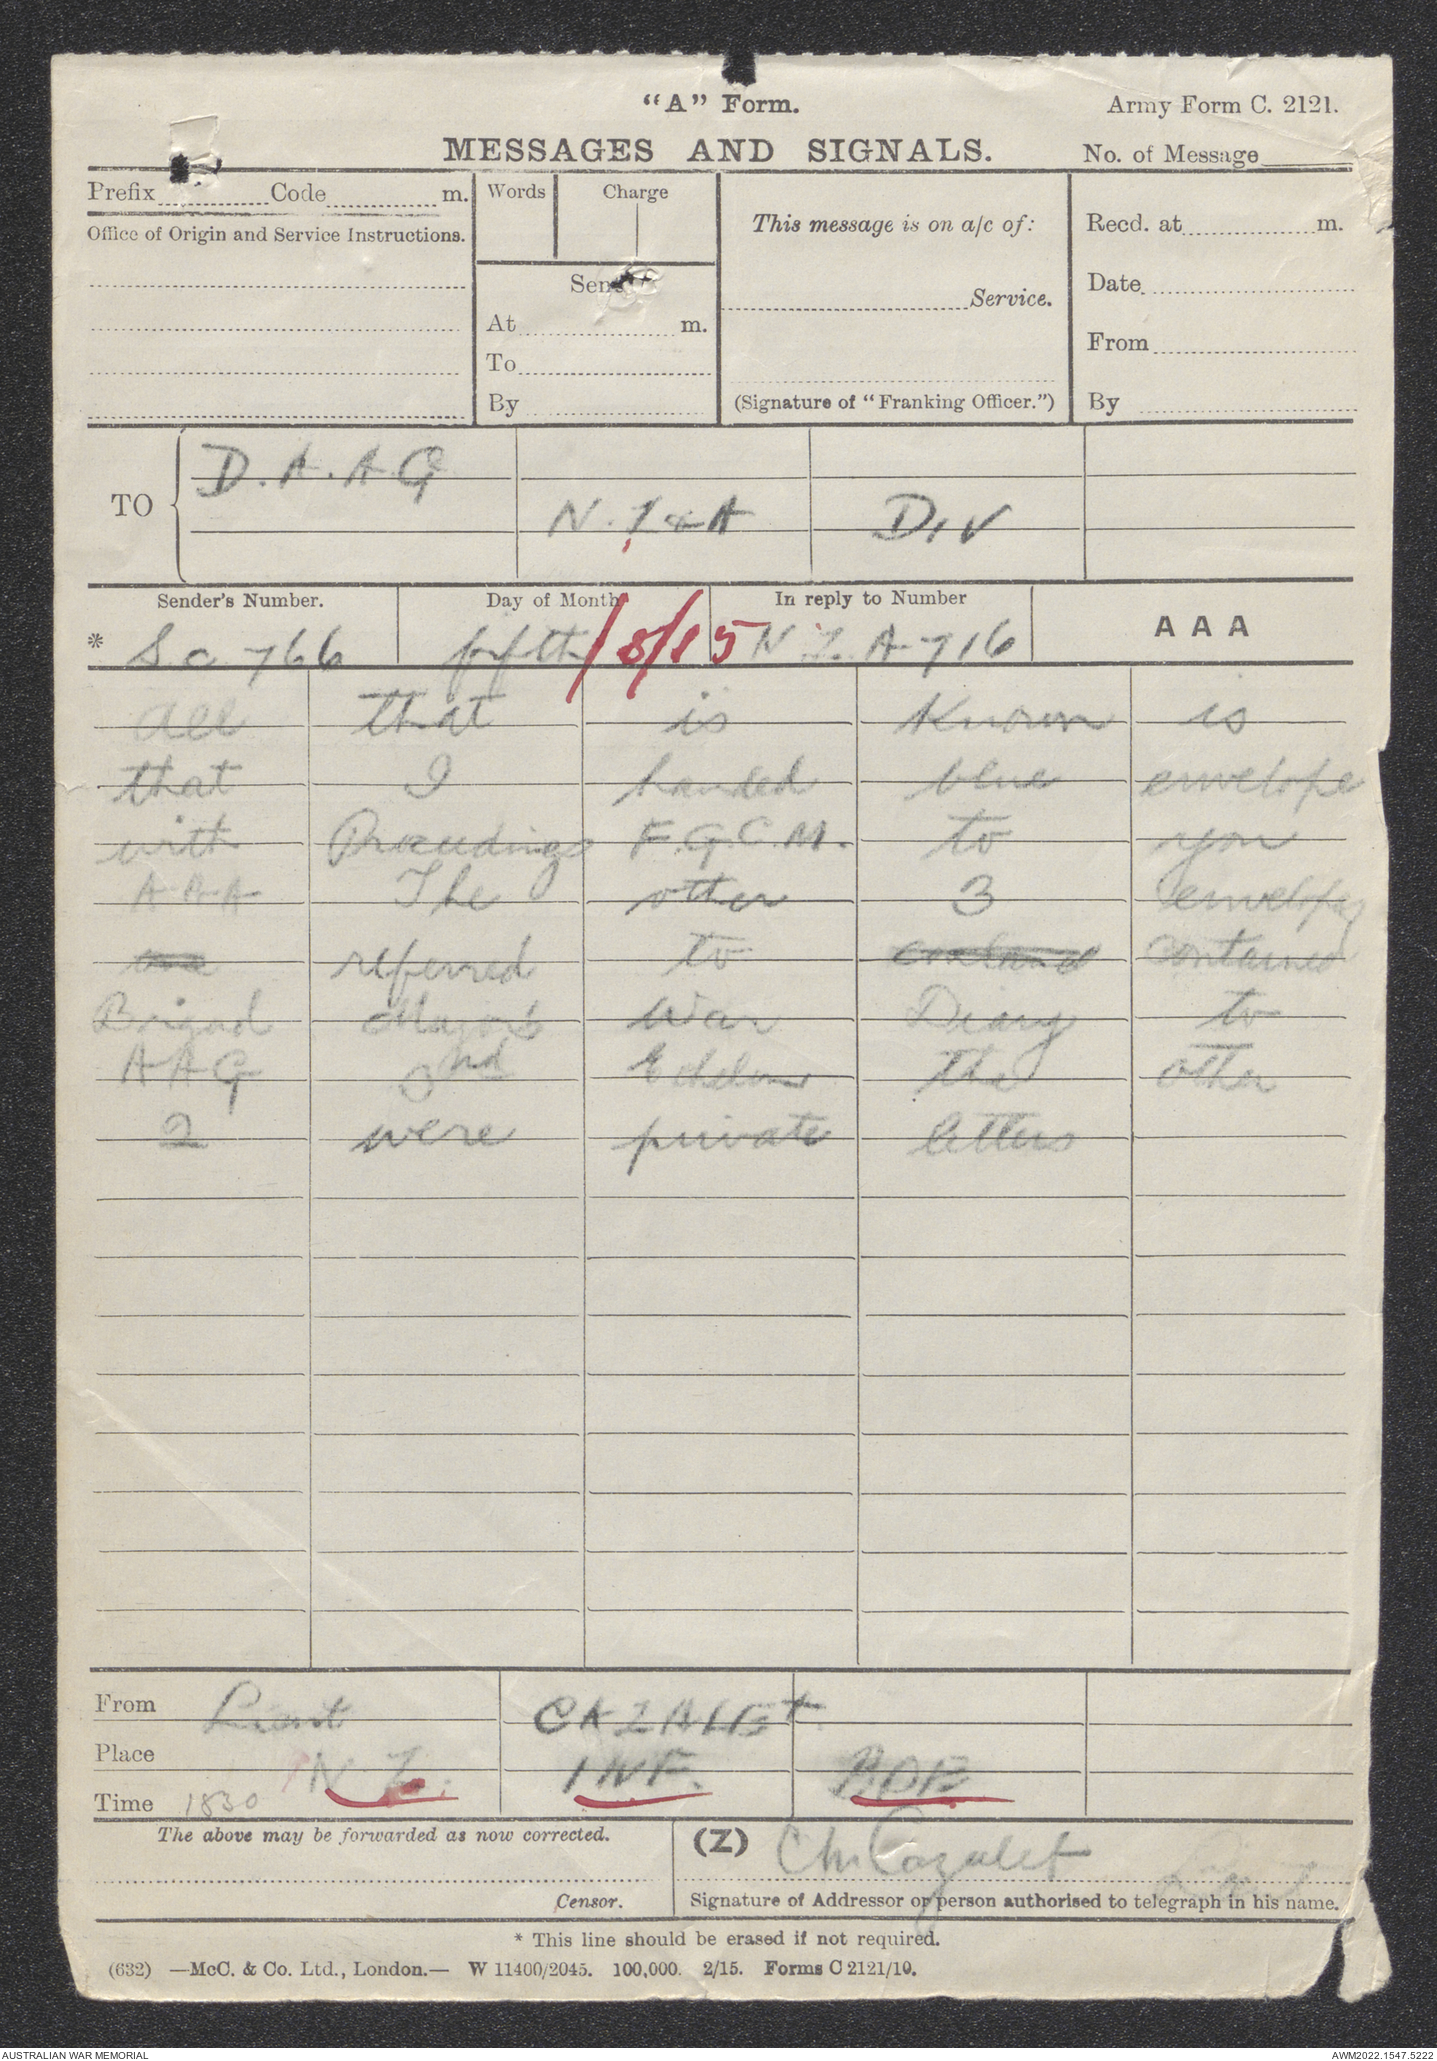 "A" Form.
Army Form C. 2121.
MESSAGES AND SIGNALS.
No. of Message
Prefix Code m.
Words Charge
This message is on a/c of:
Recd. at m.
Office of Origin and Service Instructions.
Sent
Date
Service.
At m.
From
To
By
(Signature of "Franking Officer.")
By
TO
D.A.A.G
N.Z & A Div
Sender's Number. Day of Month In reply to Number
* S.c 766 fifth /8/15 N.Z.A 716 AAA
All that is known is
that I handed blue envelope
with Proceedings F.G.C.M. to you
AAA The other 3 envelopes
referred to contained
Brigad Major's War Diary to
AAG 3rd Echelon the other
2 were private letters
From Lieut CAZALET
Place N Z. INF. BDE
Time 1830
The above may be forwarded as now corrected.
(Z) Cazalet
Censor.
Signature of Addressor or person authorised to telegraph in his name.
* This line should be erased if not required.
(632) —McC. & Co. Ltd., London.— W 11400/2045. 100,000. 2/15. Forms C 2121/10.
AUSTRALIAN WAR MEMORIAL
AWM2022.1547.5222